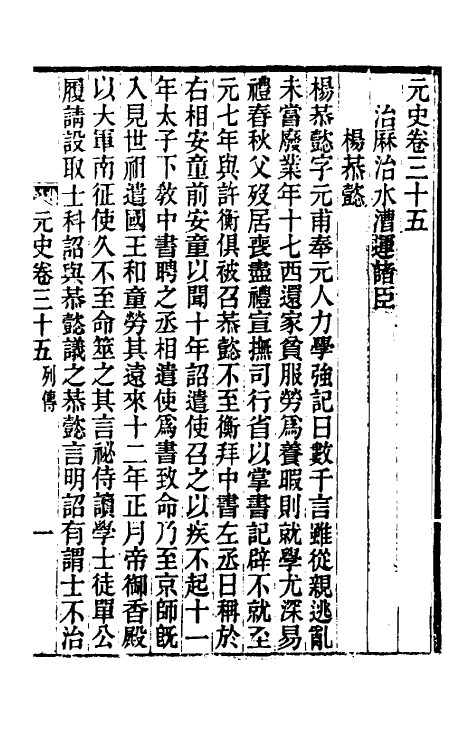 元史卷三十五
治厤治水漕運諸臣
楊恭懿
楊恭懿字元甫奉元人力學強記日數千言雖從親逃亂
未嘗廢業年十七西還家貧服勞爲養暇則就學尤深易
禮春秋父歿居喪盡禮宣撫司行省以掌書記辟不就至
元七年與許衡俱被召恭懿不至衡拜中書左丞日稱於
右相安童前安童以聞十年詔遣使召之以疾不起十一
年太子下敎中書聘之丞相遣使爲書致命乃至京師旣
入見世祖遣國王和童勞其遠來十二年正月帝御香殿
以大軍南征使久不至命筮之其言祕侍讀學士徒單公
履請設取士科詔與恭懿議之恭懿言明詔有謂士不治
元史卷三十五 列傳 一